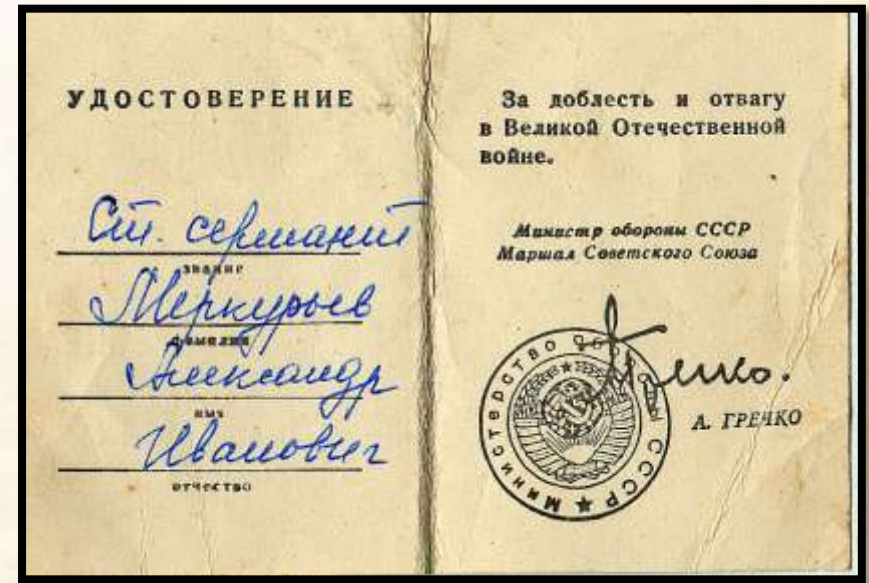 УДОСТОВЕРЕНИЕ
Ст. сержант
звание
Меркурьев
фамилия
Александр
имя
Иванович
отчество
За доблесть и отвагу
в Великой Отечественной
войне.
Министр обороны СССР
Маршал Советского Союза
Гречко.
А. ГРЕЧКО
Министерство Обороны СССР